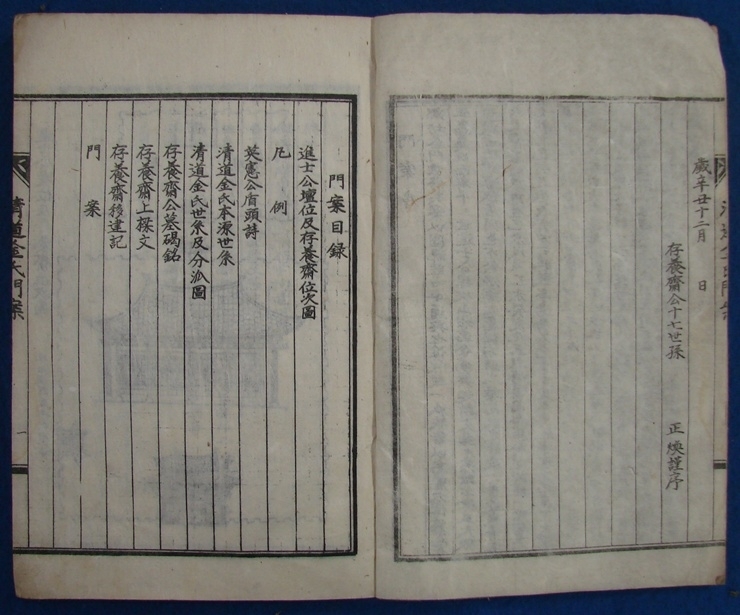 歲辛丑十二月　日
存養齋公十七世孫　正煥謹序
門案目録
進士公壇位及存養齋位次圖
凡例
英憲公眉頭詩
清道金氏本源世系
清道金氏世系及分派圖
存養齋公墓碣銘
存養齋上樑文
存養齋移建記
門案
清道金氏門案
一